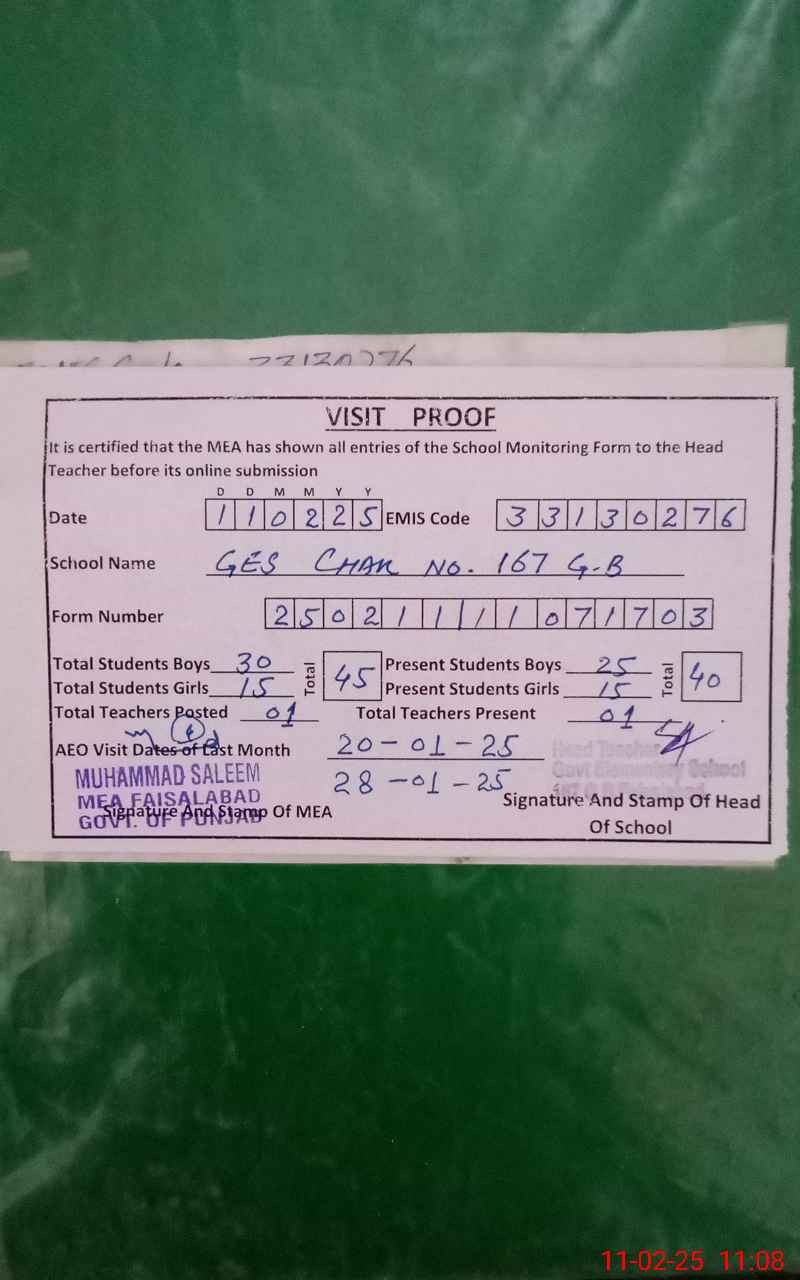 33130276
VISIT PROOF
It is certified that the MEA has shown all entries of the School Monitoring Form to the Head
Teacher before its online submission
D D M M Y Y
Date 110225 EMIS Code 33130276
School Name GES CHAK NO. 167 G-B
Form Number 250211111071703
Total Students Boys 30 Total 45 Present Students Boys 25 Total 40
Total Students Girls 15 Present Students Girls 15
Total Teachers Posted 01 Total Teachers Present 01
AEO Visit Dates of Last Month 20-01-25
28-01-25
Head Teacher
Govt Elementary School
MUHAMMAD SALEEM
MEA FAISALABAD
GOVT. OF PUNJAB
Signature And Stamp Of MEA
Signature And Stamp Of Head
Of School
11-02-25 11:08